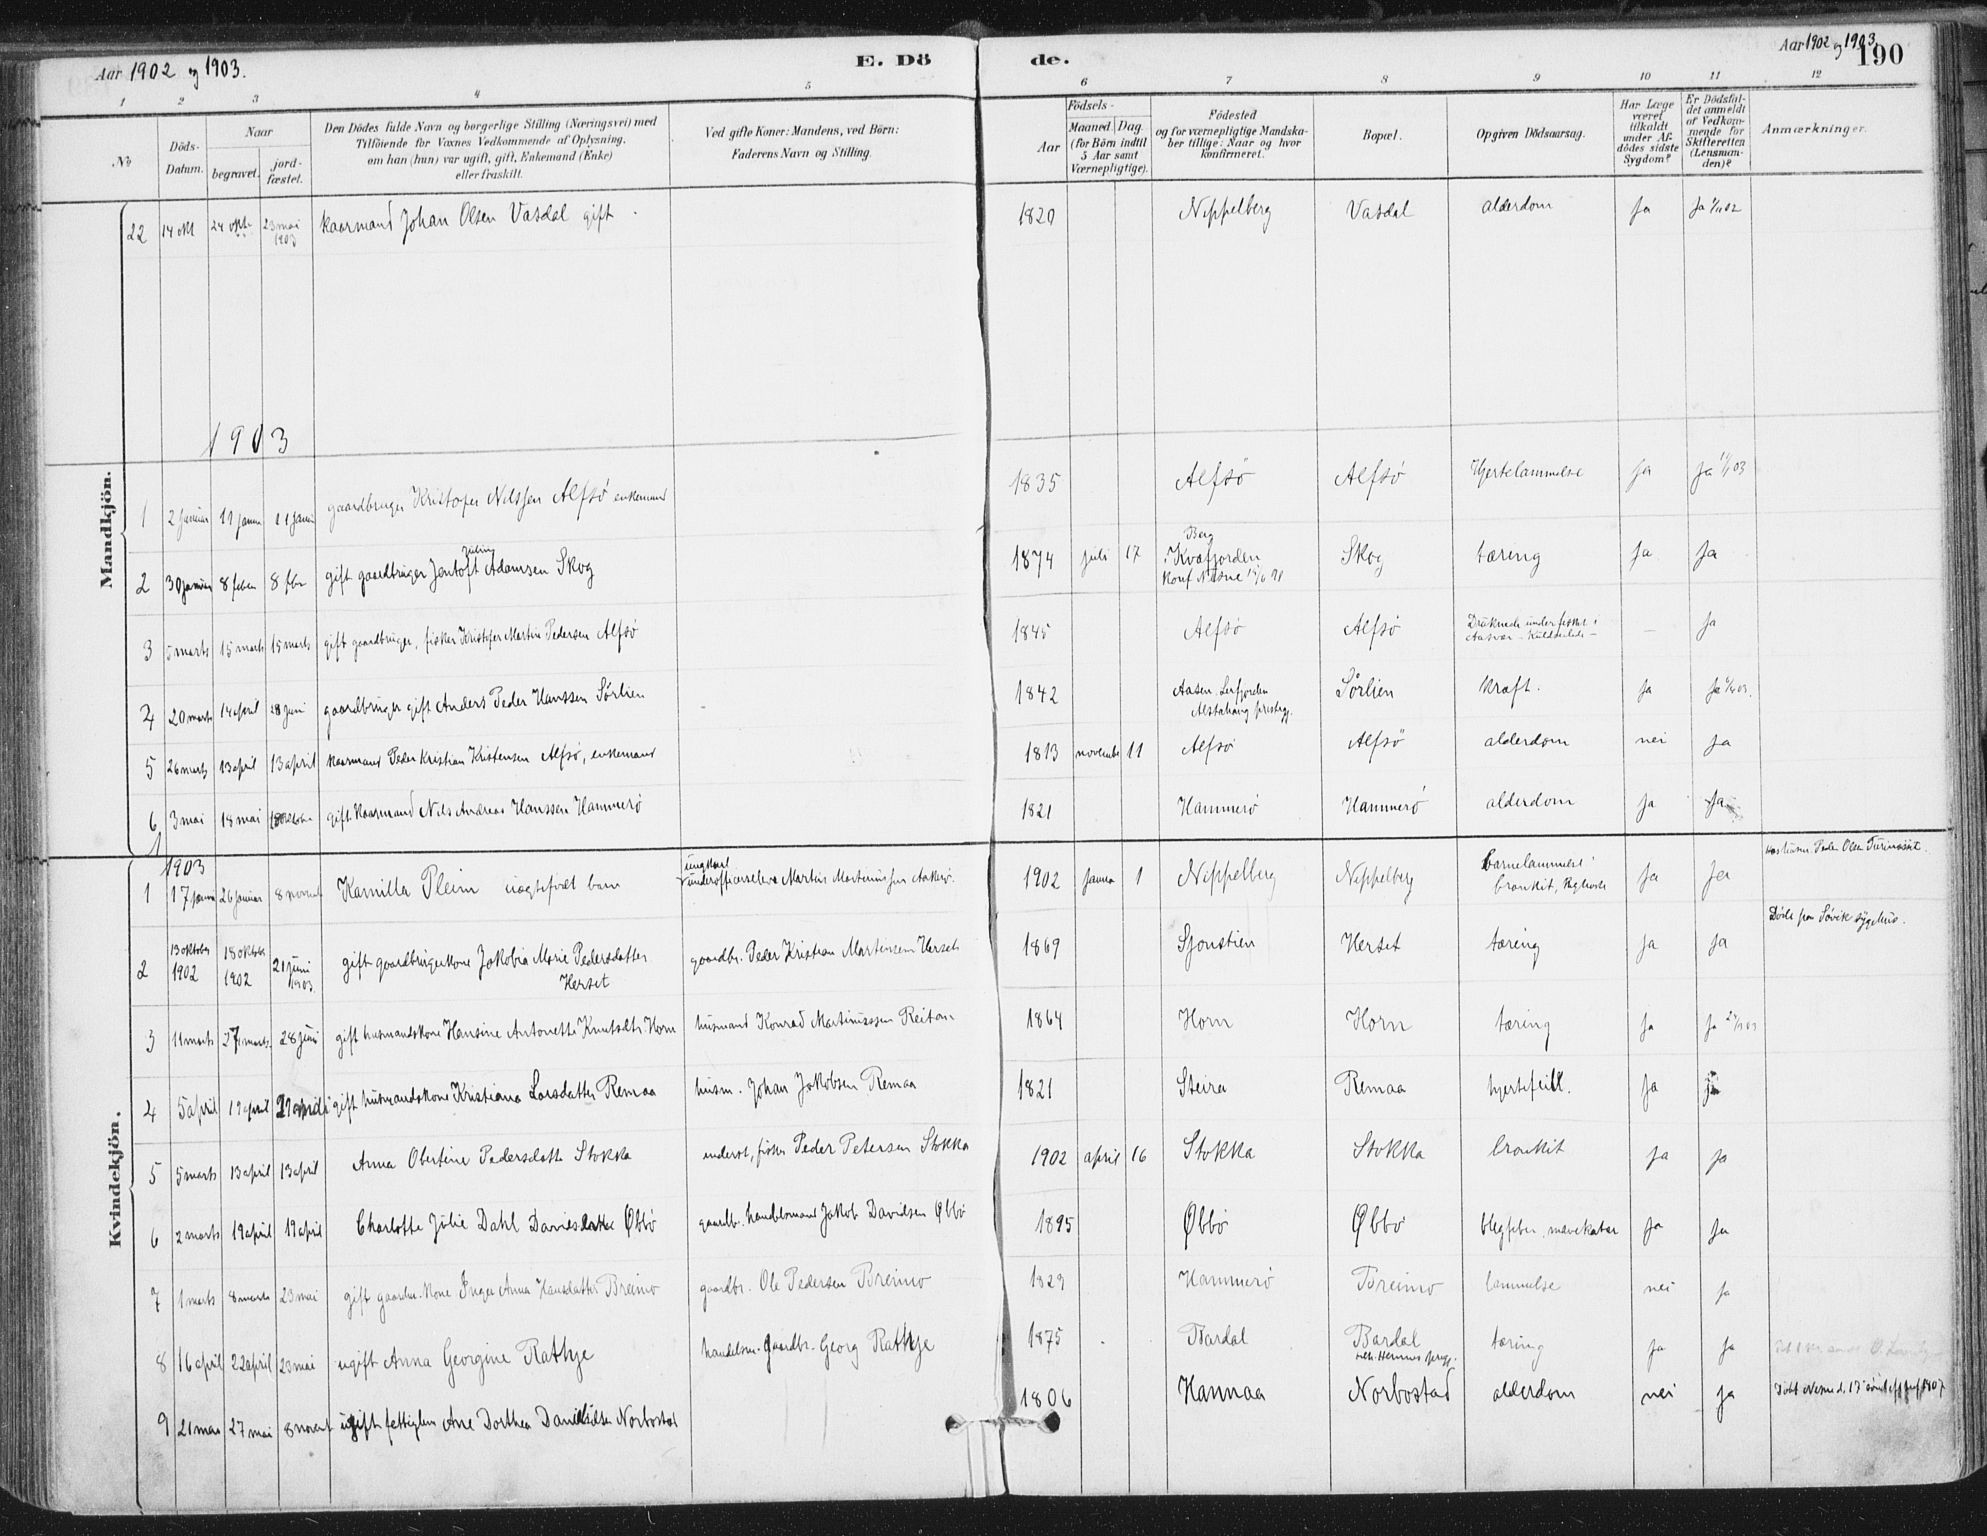 Aar 1902 og 1903.
E. Dö
de.
Aar 1902 og 1903
190
1 2 3 4 5 6 7 8 9 10 11 12
No
Döds-Datum.
Naar
begravet.
jord-fæstet.
Den Dödes fulde Navn og borgerlige Stilling (Næringsvei) med
Tilföiende for Voxnes Vedkommende af Oplysning,
om han (hun) var ugift, gift, Enkemand (Enke)
eller fraskilt.
Ved gifte Koner: Mandens, ved Börn:
Faderens Navn og Stilling.
Födsels-
Aar
Maaned. Dag.
(for Börn indtil
5 Aar samt
Værnepligtige).
Födested
og for værnepligtige Mandska-
ber tillige: Naar og hvor
konfirmeret.
Bopæl.
Opgiven Dödsaarsag.
Har Læge
været
tilkaldt
under Af-
dödes sidste
Sygdom?
Er Dödsfal-
det anmeldt
of Vedkom-
mende for
Skifteretten
(Lensman-
den)?
Anmærkninger.
Mandkjön.
22 14 okt 24 okt 23 mai 1903 kaarmand Johan Olsen Vasdal gift. 1820 Neppelberg Vasdal alderdom ja ja
1903
1 2 januar 11 januar 11 januar gaardbruger Kristofer Nilssen Alfsö enkemand 1835 Alfsö Alfsö Hjertelammelse ja ja
2 30 januar 8 feber 8 fbr gift gaardbruger Jentoft Juling Adamsen Skog 1874 juli 17 Berg i Kvæfjorden Konf Næsne Skog tæring ja ja
3 5 marts 15 marts 15 marts gift gaardbruger, fisker Kristofer Martin Pedersen Alfsö 1845 Alfsö Alfsö Druknede under fisket i Aasvær - — ja
4 20 marts 14 april 28 juni gaardbruger gift Anders Peder Hanssen Sörlien 1842 Aasen, Leirfjorden Alstahaug prestegj. Sörlien kræft. ja ja
5 26 marts 13 april 13 april kaarmand Peder Kristian Kristensen Alfsö, enkemand 1813 november 11 Alfsö Alfsö alderdom nei ja
6 3 mai 18 mai gift kaarmand Nils Andreas Hanssen Hammerö 1821 Hammerö Hammerö alderdom ja ja
Kvindekjön.
1903
1 17 januar 26 januar 8 novembr Kamilla Pleim uægtefødt barn ungkarl underofficerselev Martin Martinussen Aakerö. 1902 januar 1 Neppelberg Neppelberg bronkit, ja ja Peder Olsen
2 13 oktober 1902 18 oktober 1902 21 juni 1903. gift gaardbrugerkone Jakobia Marie Pedersdatter Herset gaardbr. Peder Kristian Martinsen Herset 1869 Sjonstien Herset tæring ja ja Döde paa Sövik sygehus.
3 11 marts 27 marts. 28 juni gift husmandskone Hansine Antonette Knutsdtr Horn husmand Konrad Martinussen Reitan 1864 Horn Horn tæring ja ja
4 5 april 19 april 19 april gift husmandskone Kristiana Larsdatter Remaa husm. Johan Jakobsen Remaa 1821 Steira Remaa hjertefeil. ja ja
5 5 marts 13 april 13 april Anna Obertine Pedersdatter Stokka fisker Peder Petersen Stokka 1902 april 16 Stokka Stokka bronkit ja ja
6 2 marts 19 april 19 april Charlotte Julie Dahl Davidsdatter Öbbö gaardbr. handelsmand Jakob Davidsen Öbbö 1895 Öbbö Öbbö blegfeber, mavekatar ja ja
7 1 marts 8 marts 23 mai gift gaardm. kone Inger Anna Hansdatter Breimo gaardbr. Ole Pedersen Breimo 1829 Hammerö Breimo lammelse nei ja
8 16 april 22 april 23 mai ugift Anna Georgine Rathje handelsm. gaardbr. Georg Rathje 1875 Bardal Bardal Hemnes prgj. tæring ja ja
9 21 mars 27 mai 8 novembr ugift fattiglem Ane Dorthea Danielsdtr Norbostad 1806 Hannaa Norbostad alderdom nei ja döbt Nesne d. 1807